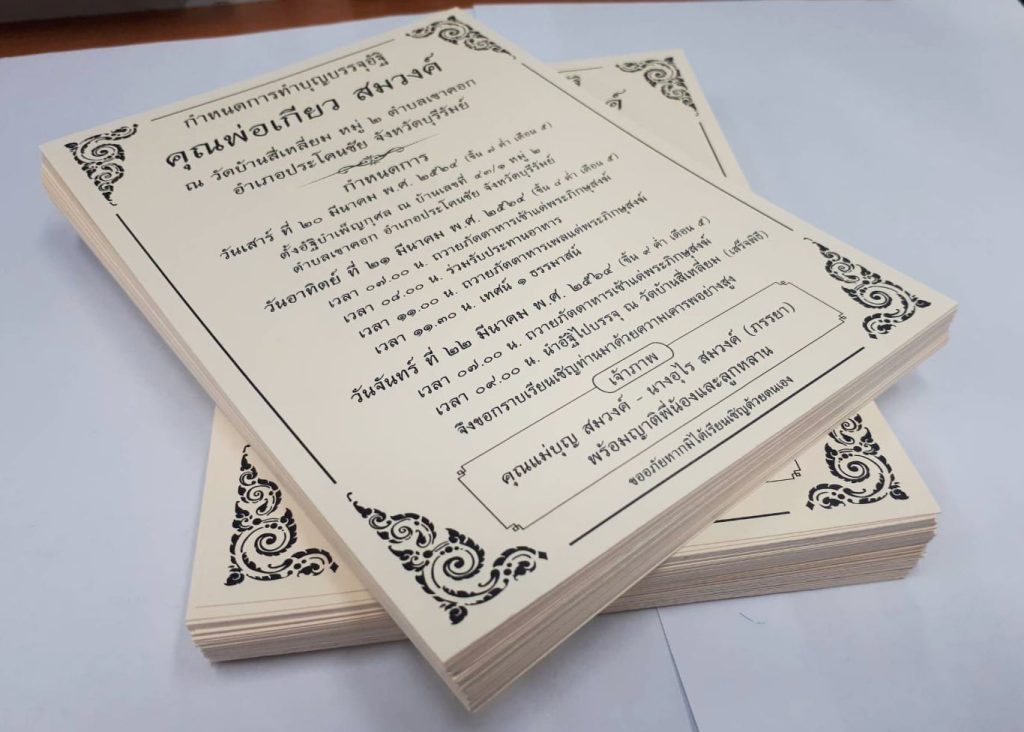 กำหนดการทำบุญบรรจุอัฐิ
คุณพ่อเกียว สมวงค์
ณ วัดบ้านสี่เหลี่ยม หมู่ ๒ ตำบลเขาคอก
อำเภอประโคนชัย จังหวัดบุรีรัมย์
กำหนดการ
วันเสาร์ ที่ ๒๐ มีนาคม พ.ศ. ๒๕๖๔ (ขึ้น ๗ ค่ำ เดือน ๕)
ตั้งอัฐิบำเพ็ญกุศล ณ บ้านเลขที่ ๔๓/๑ หมู่ ๒
ตำบลเขาคอก อำเภอประโคนชัย จังหวัดบุรีรัมย์
วันอาทิตย์ ที่ ๒๑ มีนาคม พ.ศ. ๒๕๖๔ (ขึ้น ๘ ค่ำ เดือน ๕)
เวลา ๐๗.๐๐ น. ถวายภัตตาหารเช้าแด่พระภิกษุสงฆ์
เวลา ๐๘.๐๐ น. ร่วมรับประทานอาหาร
เวลา ๑๑.๐๐ น. ถวายภัตตาหารเพลแด่พระภิกษุสงฆ์
เวลา ๑๑.๓๐ น. เทศน์ ๑ ธรรมาสน์
วันจันทร์ ที่ ๒๒ มีนาคม พ.ศ. ๒๕๖๔ (ขึ้น ๙ ค่ำ เดือน ๕)
เวลา ๐๗.๐๐ น. ถวายภัตตาหารเช้าแด่พระภิกษุสงฆ์
เวลา ๐๙.๐๐ น. นำอัฐิไปบรรจุ ณ วัดบ้านสี่เหลี่ยม (เสร็จพิธี)
จึงขอกราบเรียนเชิญท่านมาด้วยความเคารพอย่างสูง
เจ้าภาพ
คุณแม่บุญ สมวงค์ - นางอุไร สมวงค์ (ภรรยา)
พร้อมญาติพี่น้องและลูกหลาน
ขออภัยหากมิได้เรียนเชิญด้วยตนเอง